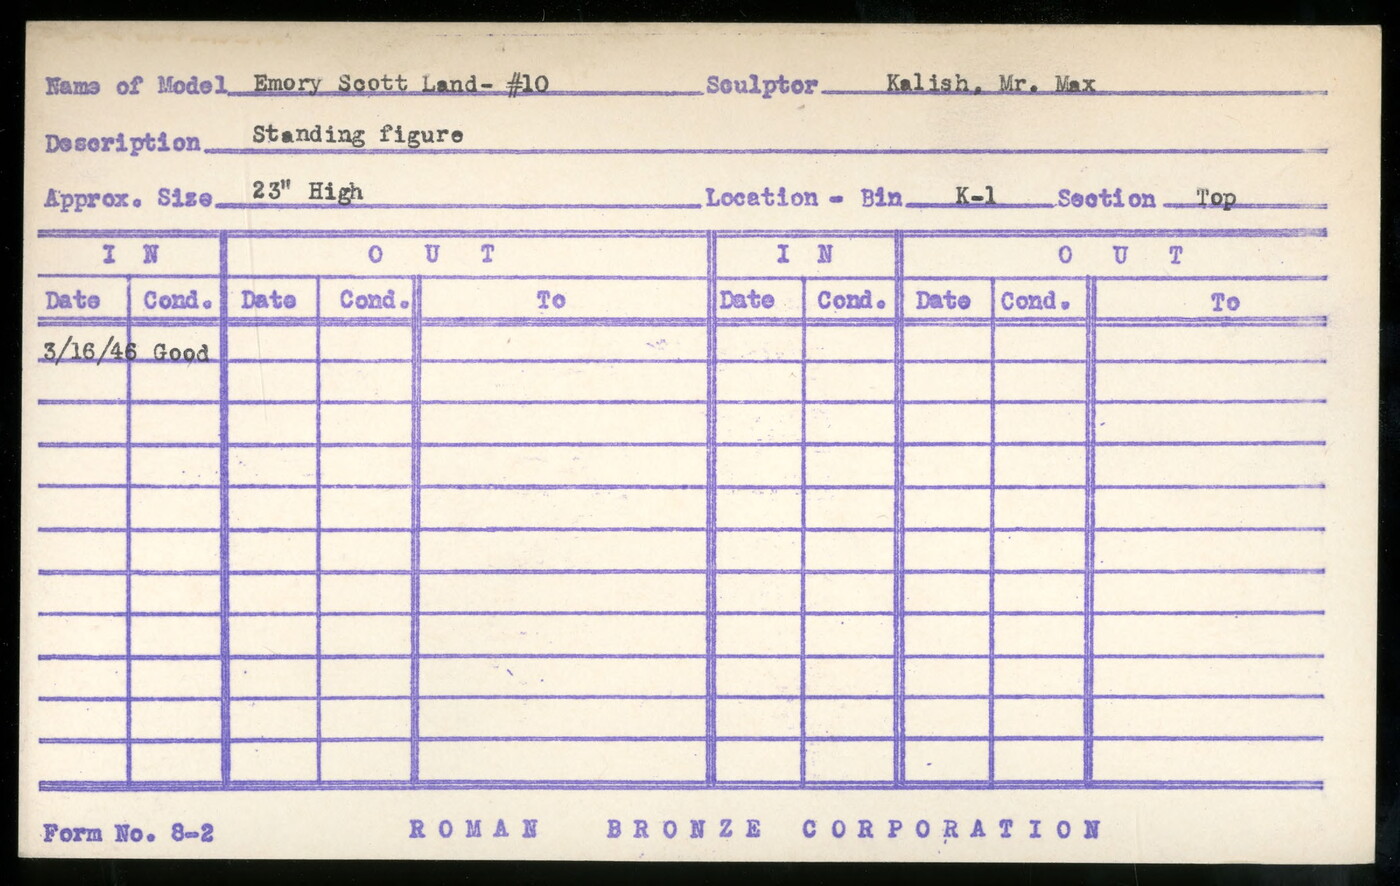 Name of Model Emory Scott Land- #10 Sculptor Kalish, Mr. Max
Description Standing figure
Approx. Size 23" High Location - Bin K-1 Section Top
I N O U T I N O U T
Date Cond. Date Cond. To Date Cond. Date Cond. To
3/16/46 Good
Form No. 8-2 ROMAN BRONZE CORPORATION